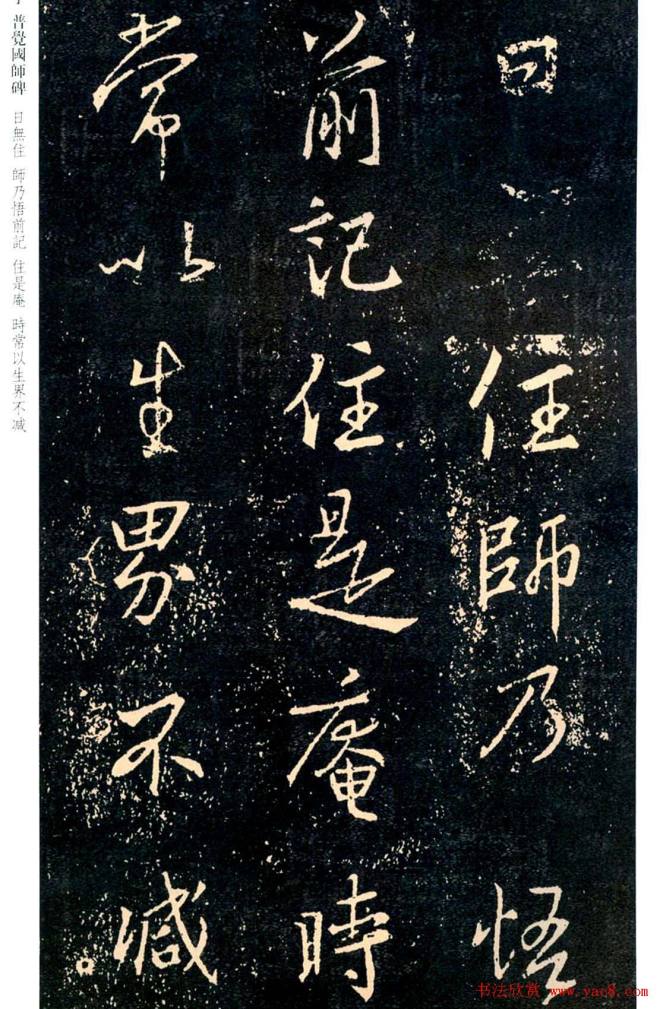 曰無住師乃悟
前記住是庵時
常以生界不減
普覺國師碑
曰無住 師乃悟前記 住是庵 時常以生界不減
书法欣赏 www.yac8.com